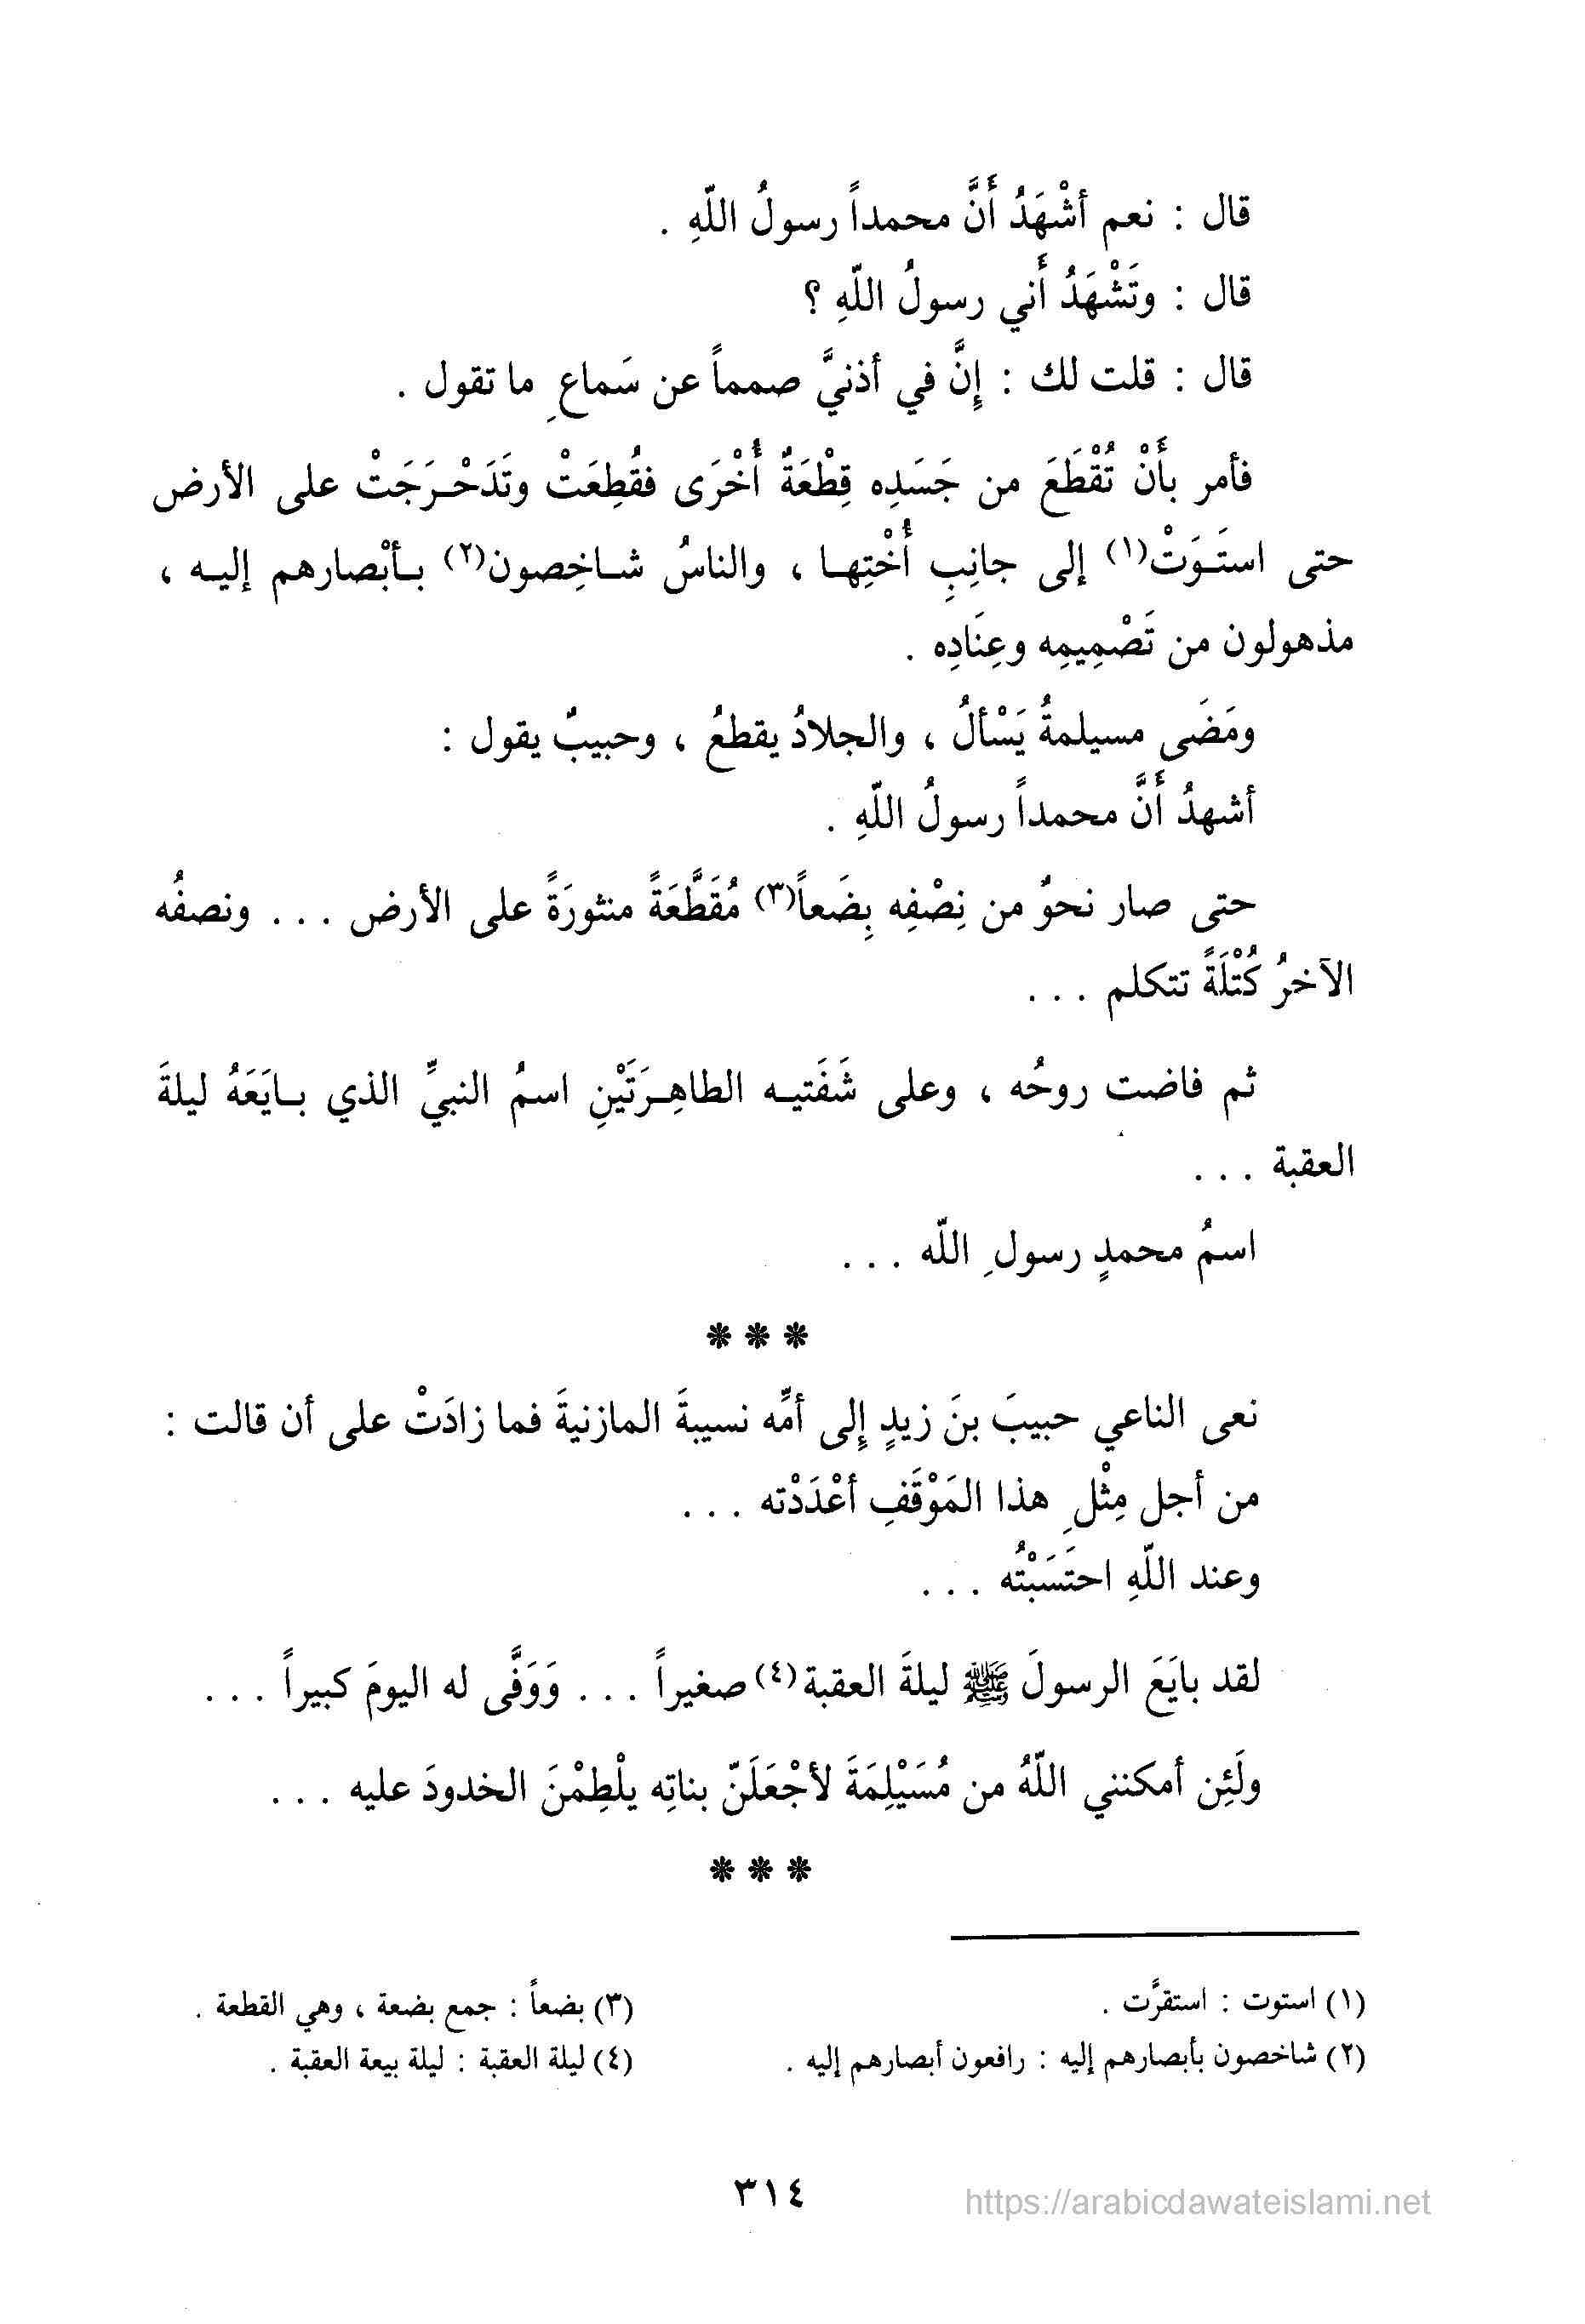 قال : نعم أشْهَدُ أَنَّ محمداً رسولُ اللّهِ .
قال : وتَشْهَدُ أَني رسولُ اللّهِ ؟
قال : قلت لك : إِنَّ في أذنيَّ صمماً عن سَماعِ ما تقول .
فأمر بأَنْ تُقْطَعَ من جَسَدِه قِطْعَةٌ أُخْرَى فقُطِعَتْ وتَدَحْـرَجَتْ على الأرض
حتى استَـوَتْ(١) إلى جانِبِ أُخْتِهـا ، والناسُ شـاخِصون(٢) بـأبْصارهم إليـه ،
مذهولون من تَصْمِيمِه وعِنَادِه .
ومَضَى مسيلمةُ يَسْألُ ، والجلادُ يقطعُ ، وحبيبٌ يقول :
أشهدُ أَنَّ محمداً رسولُ اللّهِ .
حتى صار نحوٌ من نِصْفِه بِضَعاً(٣) مُقَطَّعَةً منثورَةً على الأرض . . . ونصفُه
الآخرُ كُتْلَةً تتكلم . . .
ثم فاضت روحُه ، وعلى شَفَتيـه الطاهِـرَتَيْنِ اسمُ النبيِّ الذي بـايَعَهُ ليلةَ
العقبة . . .
اسمُ محمدٍ رسولِ اللّه . . .
❋ ❋ ❋
نعى الناعي حبيبَ بنَ زيدٍ إِلى أمِّه نسيبةَ المازنيةَ فما زادَتْ على أن قالت :
من أجل مِثْلِ هذا المَوْقَفِ أعْدَدْته . . .
وعند اللّهِ احتَسَبْتُه . . .
لقد بايَعَ الرسولَ ﷺ ليلةَ العقبة(٤) صغيراً . . . وَوَفَّى له اليومَ كبيراً . . .
ولَئِن أمكنني اللّهُ من مُسَيْلِمَةَ لأجْعَلَنّ بناتِه يلْطِمْنَ الخدودَ عليه . . .
❋ ❋ ❋
(١) استوت : استقرَّت .
(٢) شاخصون بأبصارهم إليه : رافعون أبصارهم إليه .
(٣) بضعاً : جمع بضعة ، وهي القطعة .
(٤) ليلة العقبة : ليلة بيعة العقبة .
٣١٤
https://arabicdawateislami.net